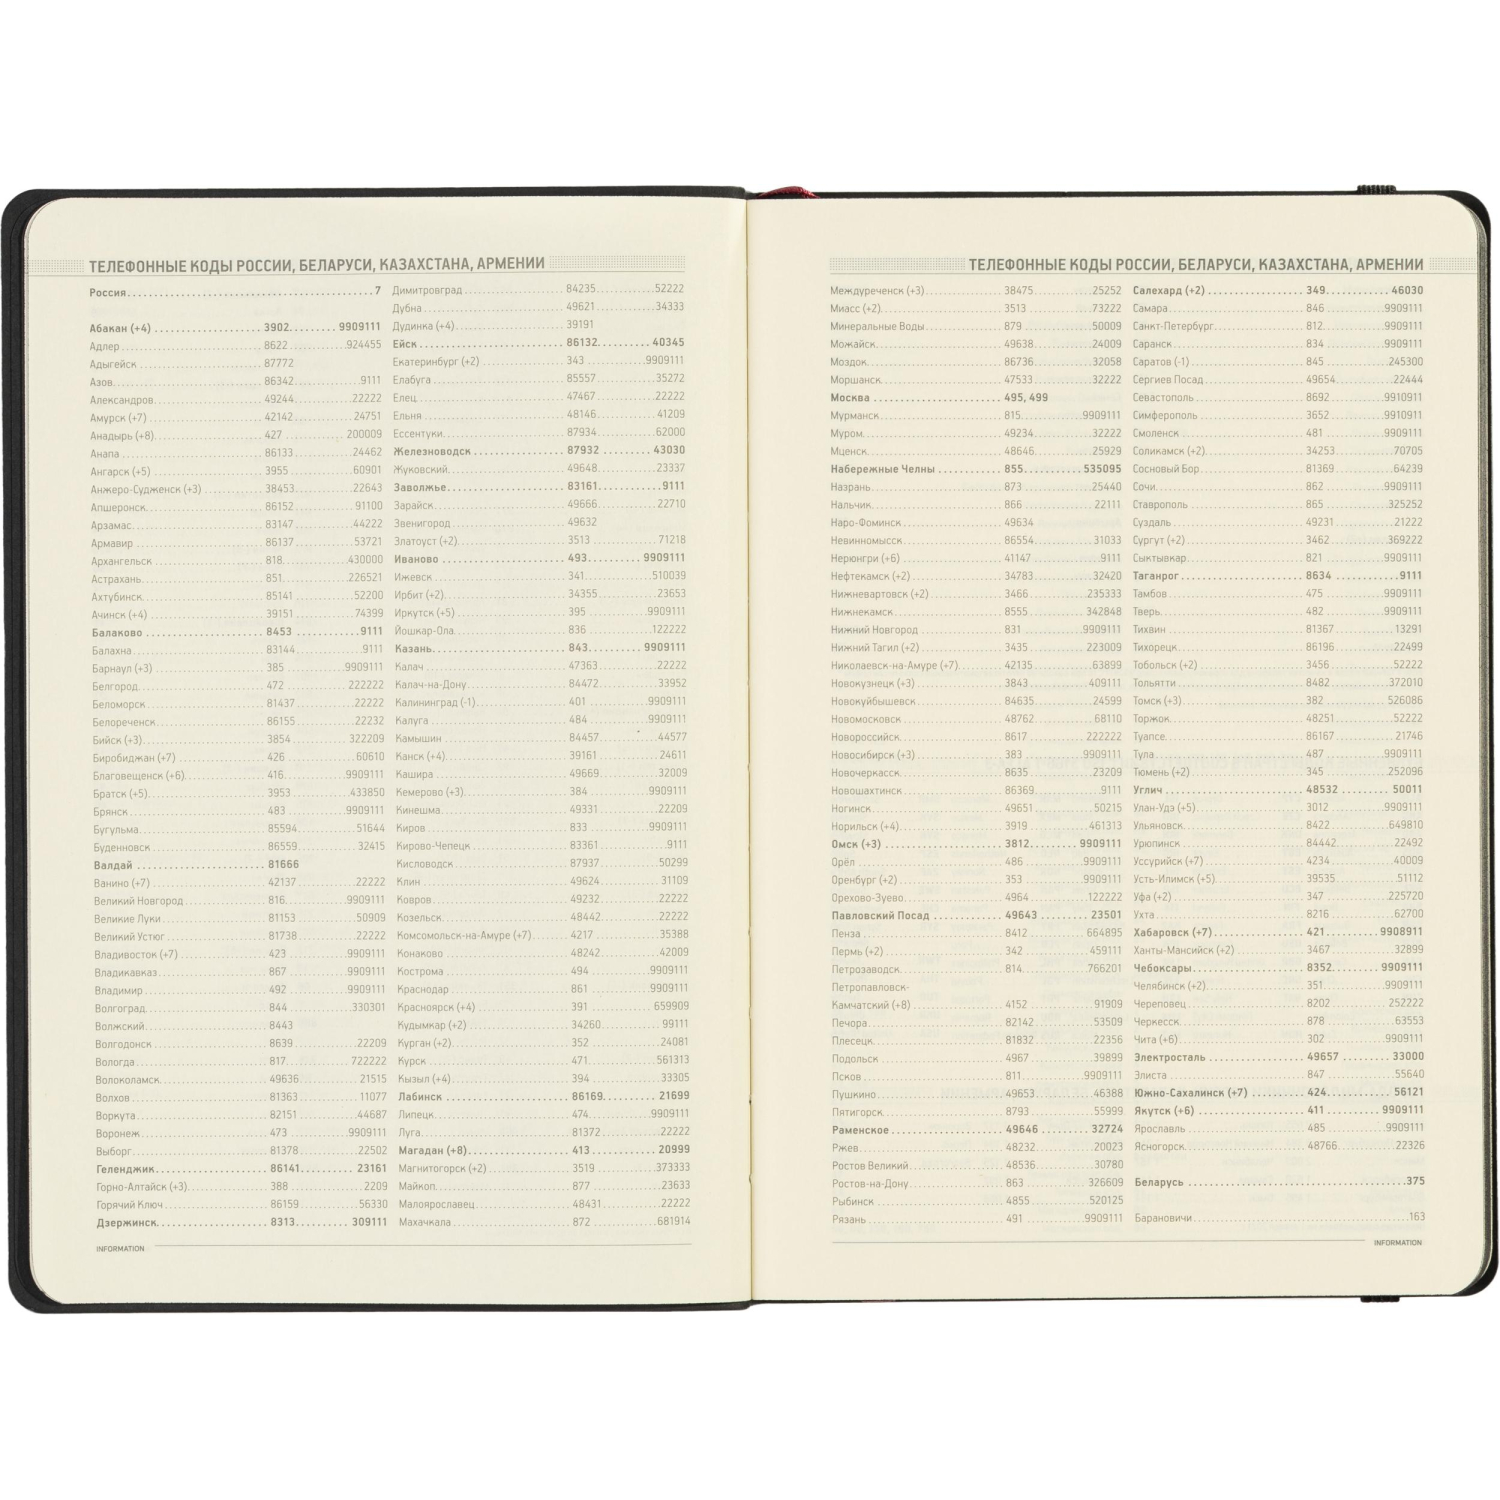 ТЕЛЕФОННЫЕ КОДЫ РОССИИ, БЕЛАРУСИ, КАЗАХСТАНА, АРМЕНИИ
Россия 7
Абакан (+4) 3902 9909111
Адлер 8622 924455
Адыгейск 87772
Азов 86342 9111
Александров 49244 22222
Амурск (+7) 42142 24751
Анадырь (+8) 427 200009
Анапа 86133 24462
Ангарск (+5) 3955 60901
Анжеро-Судженск (+3) 38453 22643
Апшеронск 86152 91100
Арзамас 83147 44222
Армавир 86137 53721
Архангельск 818 430000
Астрахань 851 226521
Ахтубинск 85141 52200
Ачинск (+4) 39151 74399
Балаково 8453 9111
Балахна 83144 9111
Барнаул (+3) 385 9909111
Белгород 472 222222
Беломорск 81437 22222
Белореченск 86155 22232
Бийск (+3) 3854 322209
Биробиджан (+7) 426 60610
Благовещенск (+6) 416 9909111
Братск (+5) 3953 433850
Брянск 483 9909111
Бугульма 85594 51644
Буденновск 86559 32415
Валдай 81666
Ванино (+7) 42137 22222
Великий Новгород 816 9909111
Великие Луки 81153 50909
Великий Устюг 81738 22222
Владивосток (+7) 423 9909111
Владикавказ 867 9909111
Владимир 492 9909111
Волгоград 844 330301
Волжский 8443
Волгодонск 8639 22209
Вологда 817 722222
Волоколамск 49636 21515
Волхов 81363 11077
Воркута 82151 44687
Воронеж 473 9909111
Выборг 81378 22502
Геленджик 86141 23161
Горно-Алтайск (+3) 388 2209
Горячий Ключ 86159 56330
Дзержинск 8313 309111
Димитровград 84235 52222
Дубна 49621 34333
Дудинка (+4) 39191
Ейск 86132 40345
Екатеринбург (+2) 343 9909111
Елабуга 85557 35272
Елец 47467 22222
Ельня 48146 41209
Ессентуки 87934 62000
Железноводск 87932 43030
Жуковский 49648 23337
Заволжье 83161 9111
Зарайск 49666 22710
Звенигород 49632
Златоуст (+2) 3513 71218
Иваново 493 9909111
Ижевск 341 510039
Ирбит (+2) 34355 23653
Иркутск (+5) 395 9909111
Йошкар-Ола 836 122222
Казань 843 9909111
Калач 47363 22222
Калач-на-Дону 84472 33952
Калининград (-1) 401 9909111
Калуга 484 9909111
Камышин 84457 44577
Канск (+4) 39161 24611
Кашира 49669 32009
Кемерово (+3) 384 9909111
Кинешма 49331 22209
Киров 833 9909111
Кирово-Чепецк 83361 9111
Кисловодск 87937 50299
Клин 49624 31109
Ковров 49232 22222
Козельск 48442 22222
Комсомольск-на-Амуре (+7) 4217 35388
Конаково 48242 42009
Кострома 494 9909111
Краснодар 861 9909111
Красноярск (+4) 391 659909
Кудымкар (+2) 34260 99111
Курган (+2) 352 24081
Курск 471 561313
Кызыл (+4) 394 33305
Лабинск 86169 21699
Липецк 474 9909111
Луга 81372 22222
Магадан (+8) 413 20999
Магнитогорск (+2) 3519 373333
Майкоп 877 23633
Малоярославец 48431 22222
Махачкала 872 681914
INFORMATION
ТЕЛЕФОННЫЕ КОДЫ РОССИИ, БЕЛАРУСИ, КАЗАХСТАНА, АРМЕНИИ
Междуреченск (+3) 38475 25252
Миасс (+2) 3513 73222
Минеральные Воды 879 50009
Можайск 49638 24009
Моздок 86736 32058
Моршанск 47533 32222
Москва 495, 499
Мурманск 815 9909111
Муром 49234 32222
Мценск 48646 25929
Набережные Челны 855 535095
Назрань 873 25440
Нальчик 866 22111
Наро-Фоминск 49634
Невинномысск 86554 31033
Нерюнгри (+6) 41147 9111
Нефтекамск (+2) 34783 32420
Нижневартовск (+2) 3466 235333
Нижнекамск 8555 342848
Нижний Новгород 831 9909111
Нижний Тагил (+2) 3435 223009
Николаевск-на-Амуре (+7) 42135 63899
Новокузнецк (+3) 3843 409111
Новокуйбышевск 84635 24599
Новомосковск 48762 68110
Новороссийск 8617 222222
Новосибирск (+3) 383 9909111
Новочеркасск 8635 23209
Новошахтинск 86369 9111
Ногинск 49651 50215
Норильск (+4) 3919 461313
Омск (+3) 3812 9909111
Орёл 486 9909111
Оренбург (+2) 353 9909111
Орехово-Зуево 4964 122222
Павловский Посад 49643 23501
Пенза 8412 664895
Пермь (+2) 342 459111
Петрозаводск 814 766201
Петропавловск-
Камчатский (+8) 4152 91909
Печора 82142 53509
Плесецк 81832 22356
Подольск 4967 39899
Псков 811 9909111
Пушкино 49653 46388
Пятигорск 8793 55999
Раменское 49646 32724
Ржев 48232 20023
Ростов Великий 48536 30780
Ростов-на-Дону 863 326609
Рыбинск 4855 520125
Рязань 491 9909111
Салехард (+2) 349 46030
Самара 846 9909111
Санкт-Петербург 812 9909111
Саранск 834 9909111
Саратов (-1) 845 245300
Сергиев Посад 49654 22444
Севастополь 8692 9910911
Симферополь 3652 9910911
Смоленск 481 9909111
Соликамск (+2) 34253 70705
Сосновый Бор 81369 64239
Сочи 862 9909111
Ставрополь 865 325252
Суздаль 49231 21222
Сургут (+2) 3462 369222
Сыктывкар 821 9909111
Таганрог 8634 9111
Тамбов 475 9909111
Тверь 482 9909111
Тихвин 81367 13291
Тихорецк 86196 22499
Тобольск (+2) 3456 52222
Тольятти 8482 372010
Томск (+3) 382 526086
Торжок 48251 52222
Туапсе 86167 21746
Тула 487 9909111
Тюмень (+2) 345 252096
Углич 48532 50011
Улан-Удэ (+5) 3012 9909111
Ульяновск 8422 649810
Урюпинск 84442 22492
Уссурийск (+7) 4234 40009
Усть-Илимск (+5) 39535 51112
Уфа (+2) 347 225720
Ухта 8216 62700
Хабаровск (+7) 421 9908911
Ханты-Мансийск (+2) 3467 32899
Чебоксары 8352 9909111
Челябинск (+2) 351 9909111
Череповец 8202 252222
Черкесск 878 63553
Чита (+6) 302 9909111
Электросталь 49657 33000
Элиста 847 55640
Южно-Сахалинск (+7) 424 56121
Якутск (+6) 411 9909111
Ярославль 485 9909111
Ясногорск 48766 22326
Беларусь 375
Барановичи 163
INFORMATION